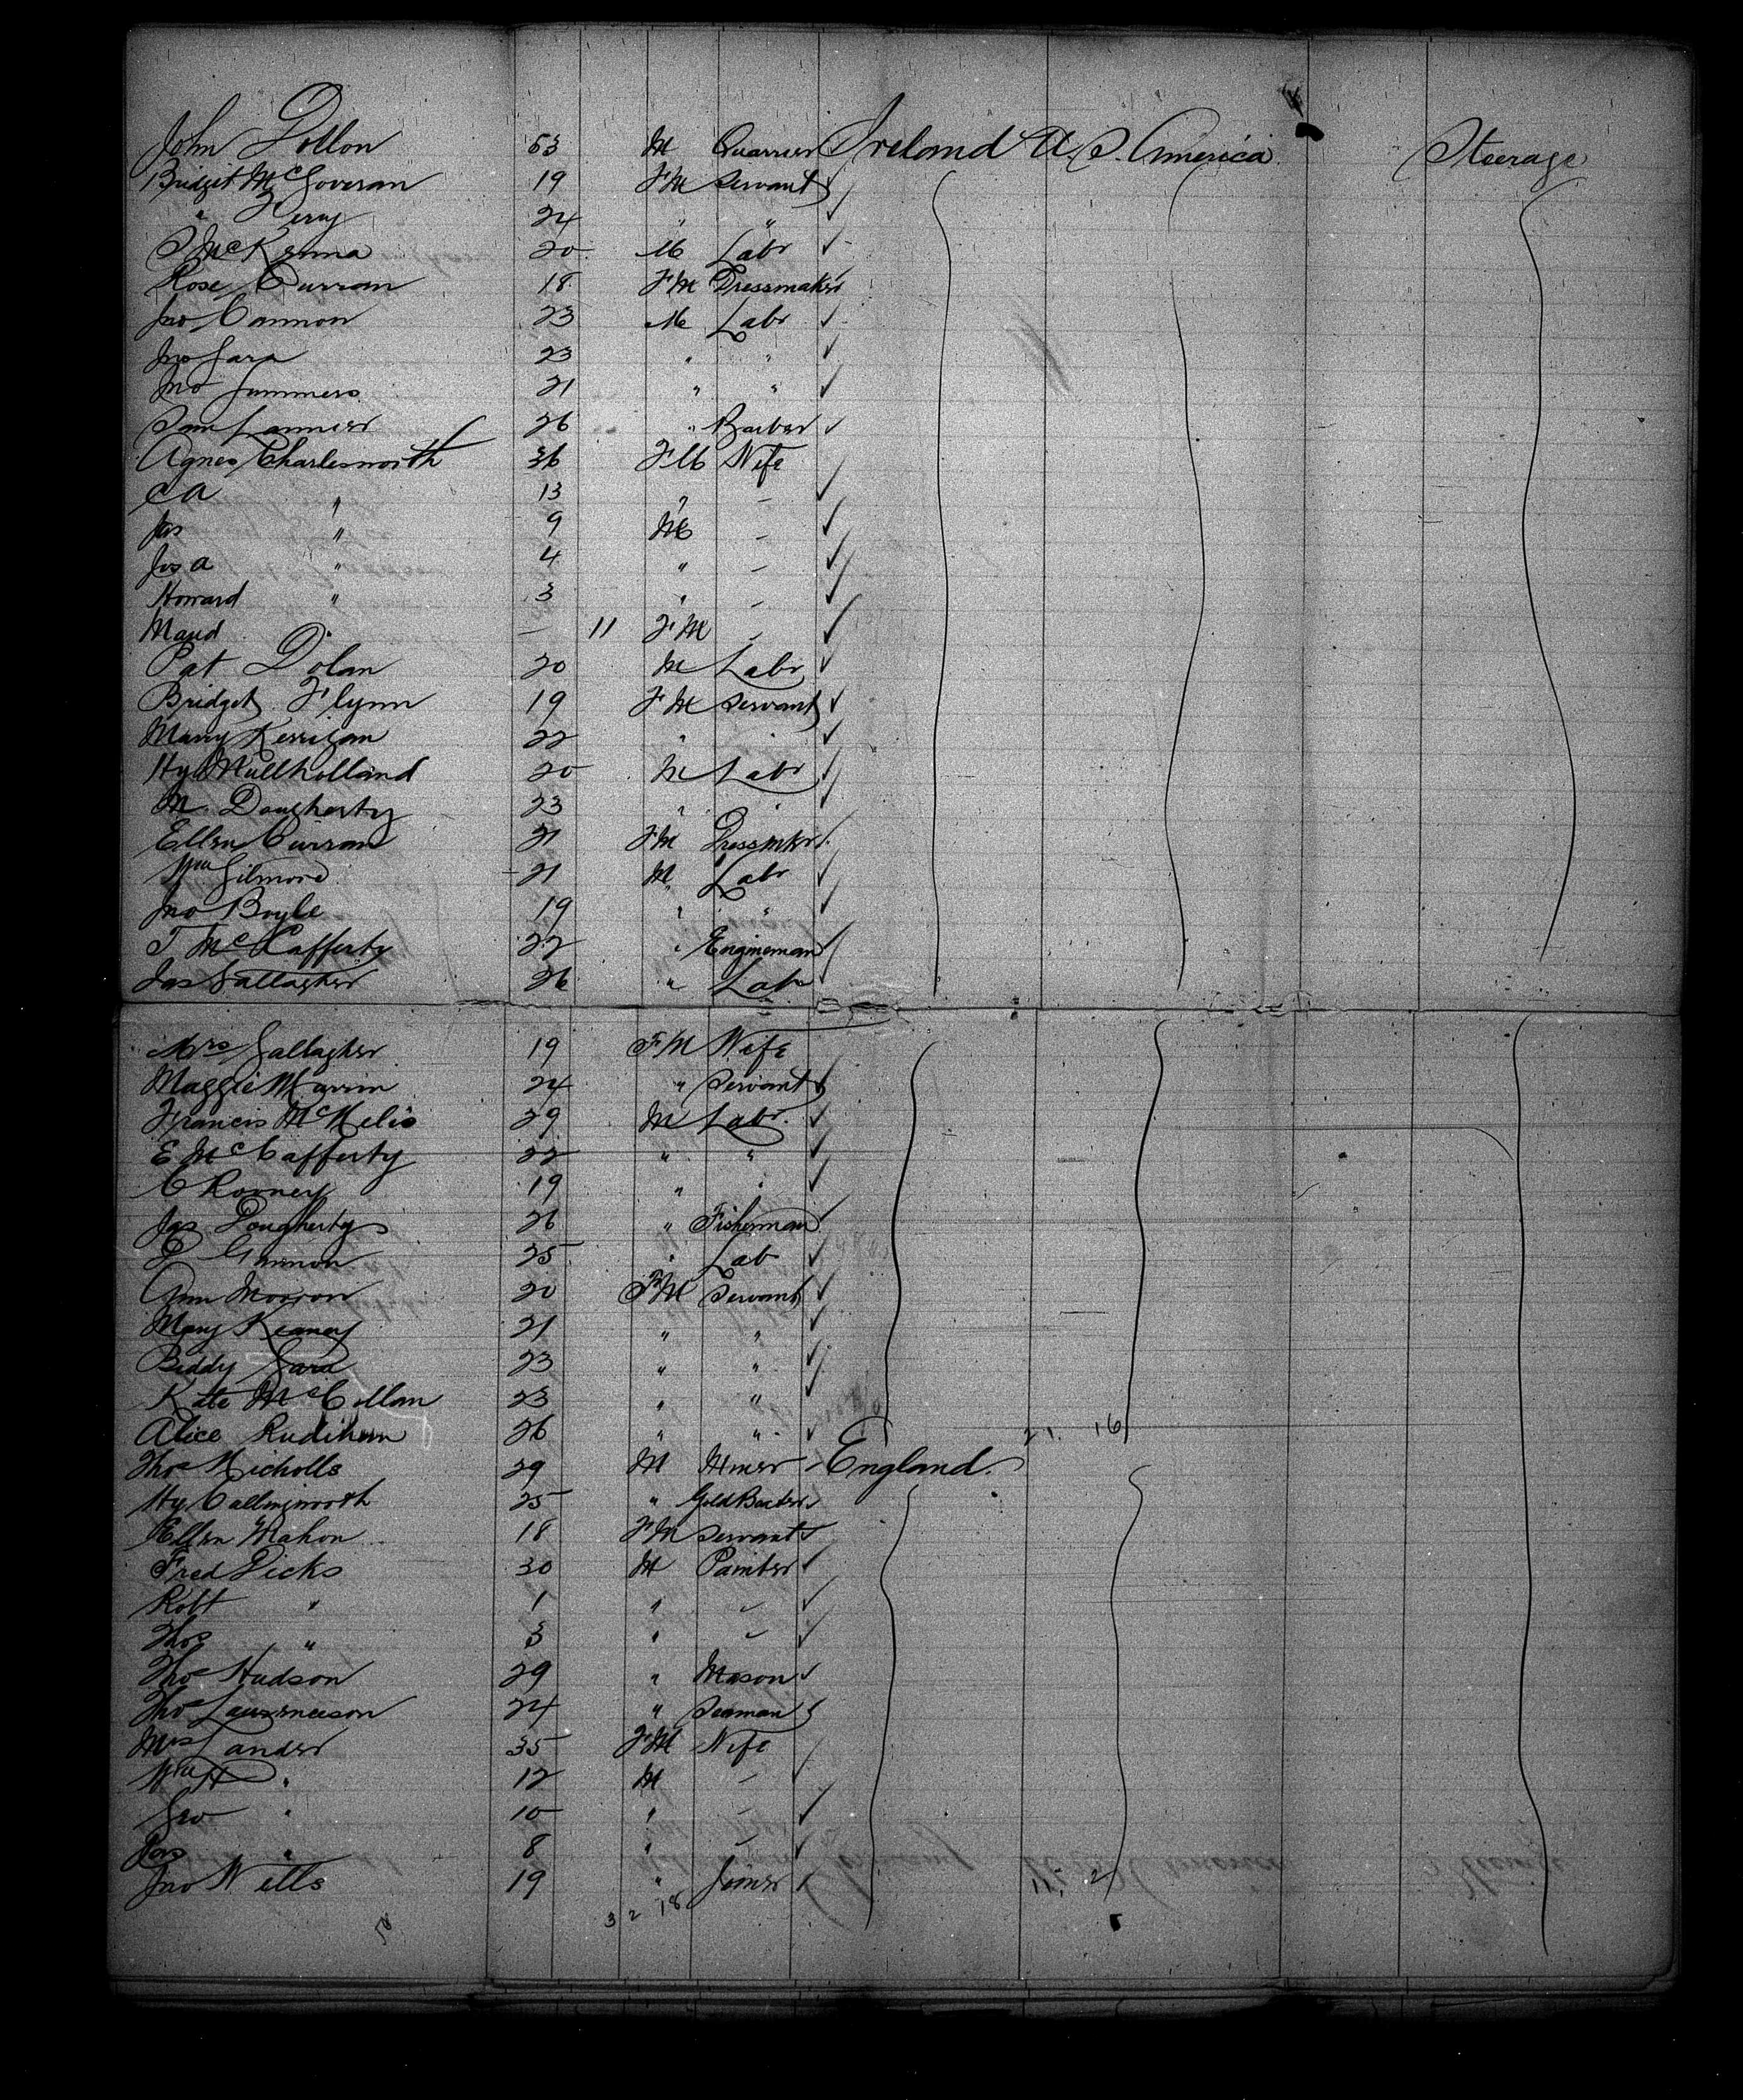 John Dollon 53 M Quarrier Ireland U.S. America Steerage
Bridget McGoveran 19 FM Servant
" Ferry 24 " "
S McKenna 20 M Labr
Rose Curran 18 FM Dressmaker
Jno Cannon 23 M Labr
Jno Gara 23 " "
Jno Summers 21 " "
Sam Lanner 26 " Barber
Agnes Charlesworth 36 FM Wife
C A " 13 " –
Jas " 9 M –
Jos A " 4 " –
Howard " 3 " –
Maud " – 11 FM –
Pat Dolan 20 M Labr
Bridget Flynn 19 FM Servant
Mary Kerrigan 22 " "
Hy Mullholland 20 M Labr
M. Dougherty 23 " "
Ellen Curran 21 FM Dressmkr
Wm Gilmore 21 M Labr
Jno Boyle 19 " "
T McCafferty 22 " Engineman
Jas Gallagher 26 " Labr
Mrs Gallagher 19 FM Wife
Maggie Marrin 24 " Servant
Francis McNelis 29 M Labr.
E McCafferty 22 " "
C Rooney 19 " "
Jas Dougherty 26 " Fisherman
P Gannon 25 " Lab
Ann Morron 20 FM Servant
Mary Keaney 21 " "
Biddy Gara 23 " "
Kate McCollan 23 " "
Alice 26 " " 21. 16
Thos Nicholls 29 M Miner England
Hy Collingworth 25 " Gold Beater
Ellen Mahon 18 FM Servant
Fred Dicks 30 M Painter
Robt " 1 " –
Thos " 3 " –
Thos Hudson 29 " Mason
Thos 24 " Seaman
Mrs Lander 35 FM Wife
Wm H " 12 M –
Geo " 10 " –
Jas " 8 " –
Jno Wells 19 " Joiner 11, 2
50 32 18